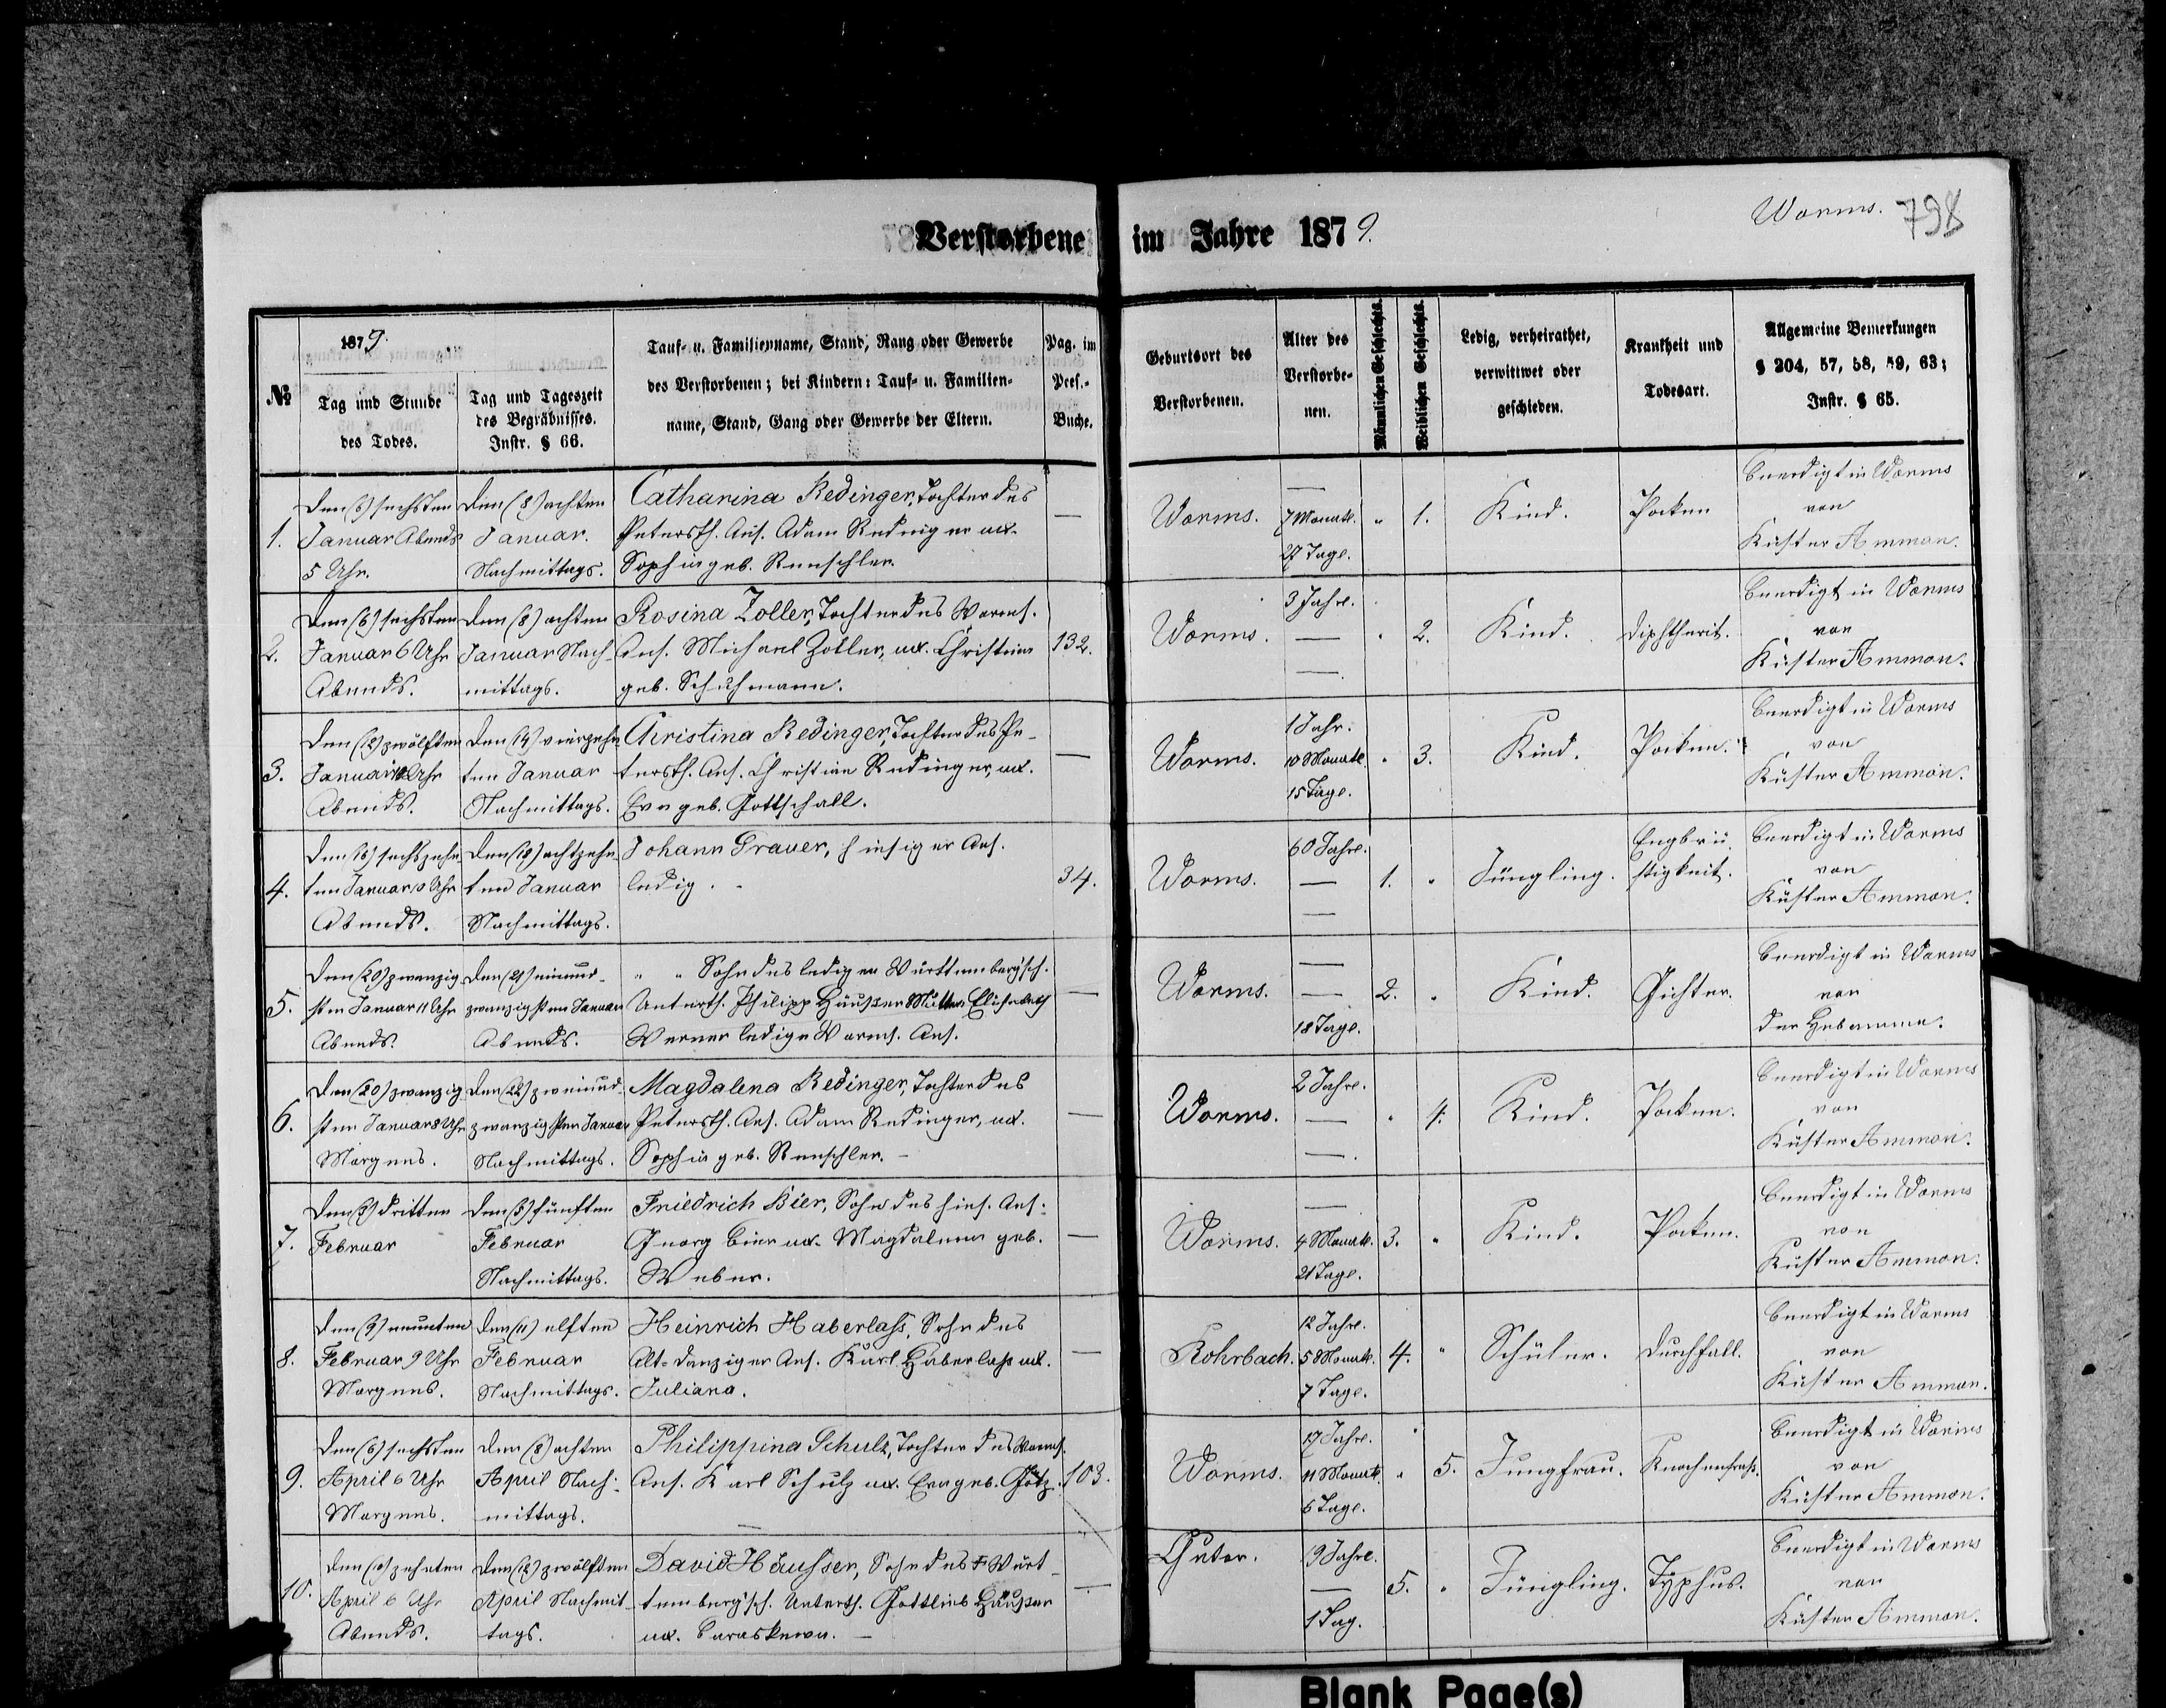 Worms. 798
Verstorbene im Jahre 1879.
№
1879.
Tag und Stunde
des Todes.
Tag und Tageszeit
des Begräbnisses.
Instr. § 66.
Tauf- u. Familienname, Stand, Rang oder Gewerbe
des Verstorbenen; bei Kindern: Tauf- u. Familien-
name, Stand, Gang oder Gewerbe der Eltern.
Pag. im
Pers.-
Buche.
Geburtsort des
Verstorbenen.
Alter des
Verstorbe-
nen.
Männlichen Geschlechts.
Weiblichen Geschlechts.
Ledig, verheirathet,
verwittwet oder
geschieden.
Krankheit und
Todesart.
Allgemeine Bemerkungen
§ 204, 57, 58, 59, 63;
Instr. § 65.
1.
Den (6) sechsten
Januar Abends
5 Uhr.
Den (8) achten
Januar.
Nachmittags.
Catharina Redinger, Tochter des
Petersth. Ans. Adam Redinger ux.
Sophia geb. Renschler.
—
Worms.
—
7 Monate.
27 Tage.
" 1.
Kind.
Pocken
beerdigt in Worms
von
Küster Ammon.
2.
Den (6) sechsten
Januar 6 Uhr
Abends.
Den (8) achten
Januar Nach-
mittags.
Rosina Zoller, Tochter des Worms.
Ans. Michael Zoller, ux. Christina
geb. Schuhmann.
132.
Worms.
3 Jahre.
—
—
" 2.
Kind.
Diphtherit.
beerdigt in Worms
von
Küster Ammon.
3.
Den (12) zwölften
Januar Uhr
Abends.
Den (14) vierzehn-
ten Januar
Nachmittags.
Christina Redinger, Tochter des Pe-
tersth. Ans. Christian Redinger, ux.
Eva geb. Gottschall.
—
Worms.
1 Jahr.
10 Monate.
15 Tage.
" 3.
Kind.
Pocken.
beerdigt in Worms
von
Küster Ammon.
4.
Den (16) sechszehn-
ten Januar 10 Uhr
Abends.
Den (18) achtzehn-
ten Januar
Nachmittags.
Johann Grauer, hiesiger Ans.
ledig.
34.
Worms.
60 Jahre.
—
—
1. "
Jüngling.
Engbrü-
stigkeit.
beerdigt in Worms
von
Küster Ammon.
5.
Den (20) zwanzig-
sten Januar 11 Uhr
Abends.
Den (21) einund-
zwanzigsten Januar
Abends.
" " Sohn des ledigen Württembergsch.
Unterth. Philipp Häusser Mutter Elisabeth
Werner ledige Worms. Ans.
—
Worms.
—
—
18 Tage.
2. "
Kind.
Gichter.
beerdigt in Worms
von
der Hebamme.
6.
Den (20) zwanzig-
sten Januar 8 Uhr
Morgens.
Den (22) zweiund-
zwanzigsten Januar
Nachmittags.
Magdalena Redinger, Tochter des
Petersth. Ans. Adam Redinger, ux.
Sophia geb. Renschler. —
—
Worms.
2 Jahre.
—
—
" 4.
Kind.
Pocken.
beerdigt in Worms
von
Küster Ammon.
7.
Den (3) dritten
Februar
Den (5) fünften
Februar
Nachmittags.
Friedrich Bier, Sohn des hies. Ans.
Georg Bier ux. Magdalena geb.
Weber.
—
Worms.
—
4 Monate.
21 Tage.
3. "
Kind.
Pocken.
beerdigt in Worms
von
Küster Ammon.
8.
Den (9) neunten
Februar 9 Uhr
Morgens.
Den (11) elften
Februar
Nachmittags.
Heinrich Haberlass, Sohn des
Alt-Danziger Ans. Karl Haberlass ux.
Juliana.
—
Rohrbach.
12 Jahre.
5 Monate.
7 Tage.
4. "
Schüler.
Durchfall.
beerdigt in Worms
von
Küster Ammon.
9.
Den (6) sechsten
April 6 Uhr
Morgens.
Den (8) achten
April Nach-
mittags.
Philippina Schulz, Tochter des Worms.
Ans. Karl Schulz ux. Eva geb. Götz.
103.
Worms.
17 Jahre.
11 Monate.
6 Tage.
" 5.
Jungfrau.
Knochenfraß.
beerdigt in Worms
von
Küster Ammon.
10.
Den (10) zehnten
April 6 Uhr
Abends.
Den (12) zwölften
April Nachmit-
tags.
David Häusser, Sohn des + Würt-
tembergsch. Unterth. Gottlieb Häusser
ux. Baraskewa. —
—
19 Jahre.
—
1 Tag.
5. "
Jüngling.
Typhus.
beerdigt in Worms
von
Küster Ammon.
Blank Page(s)